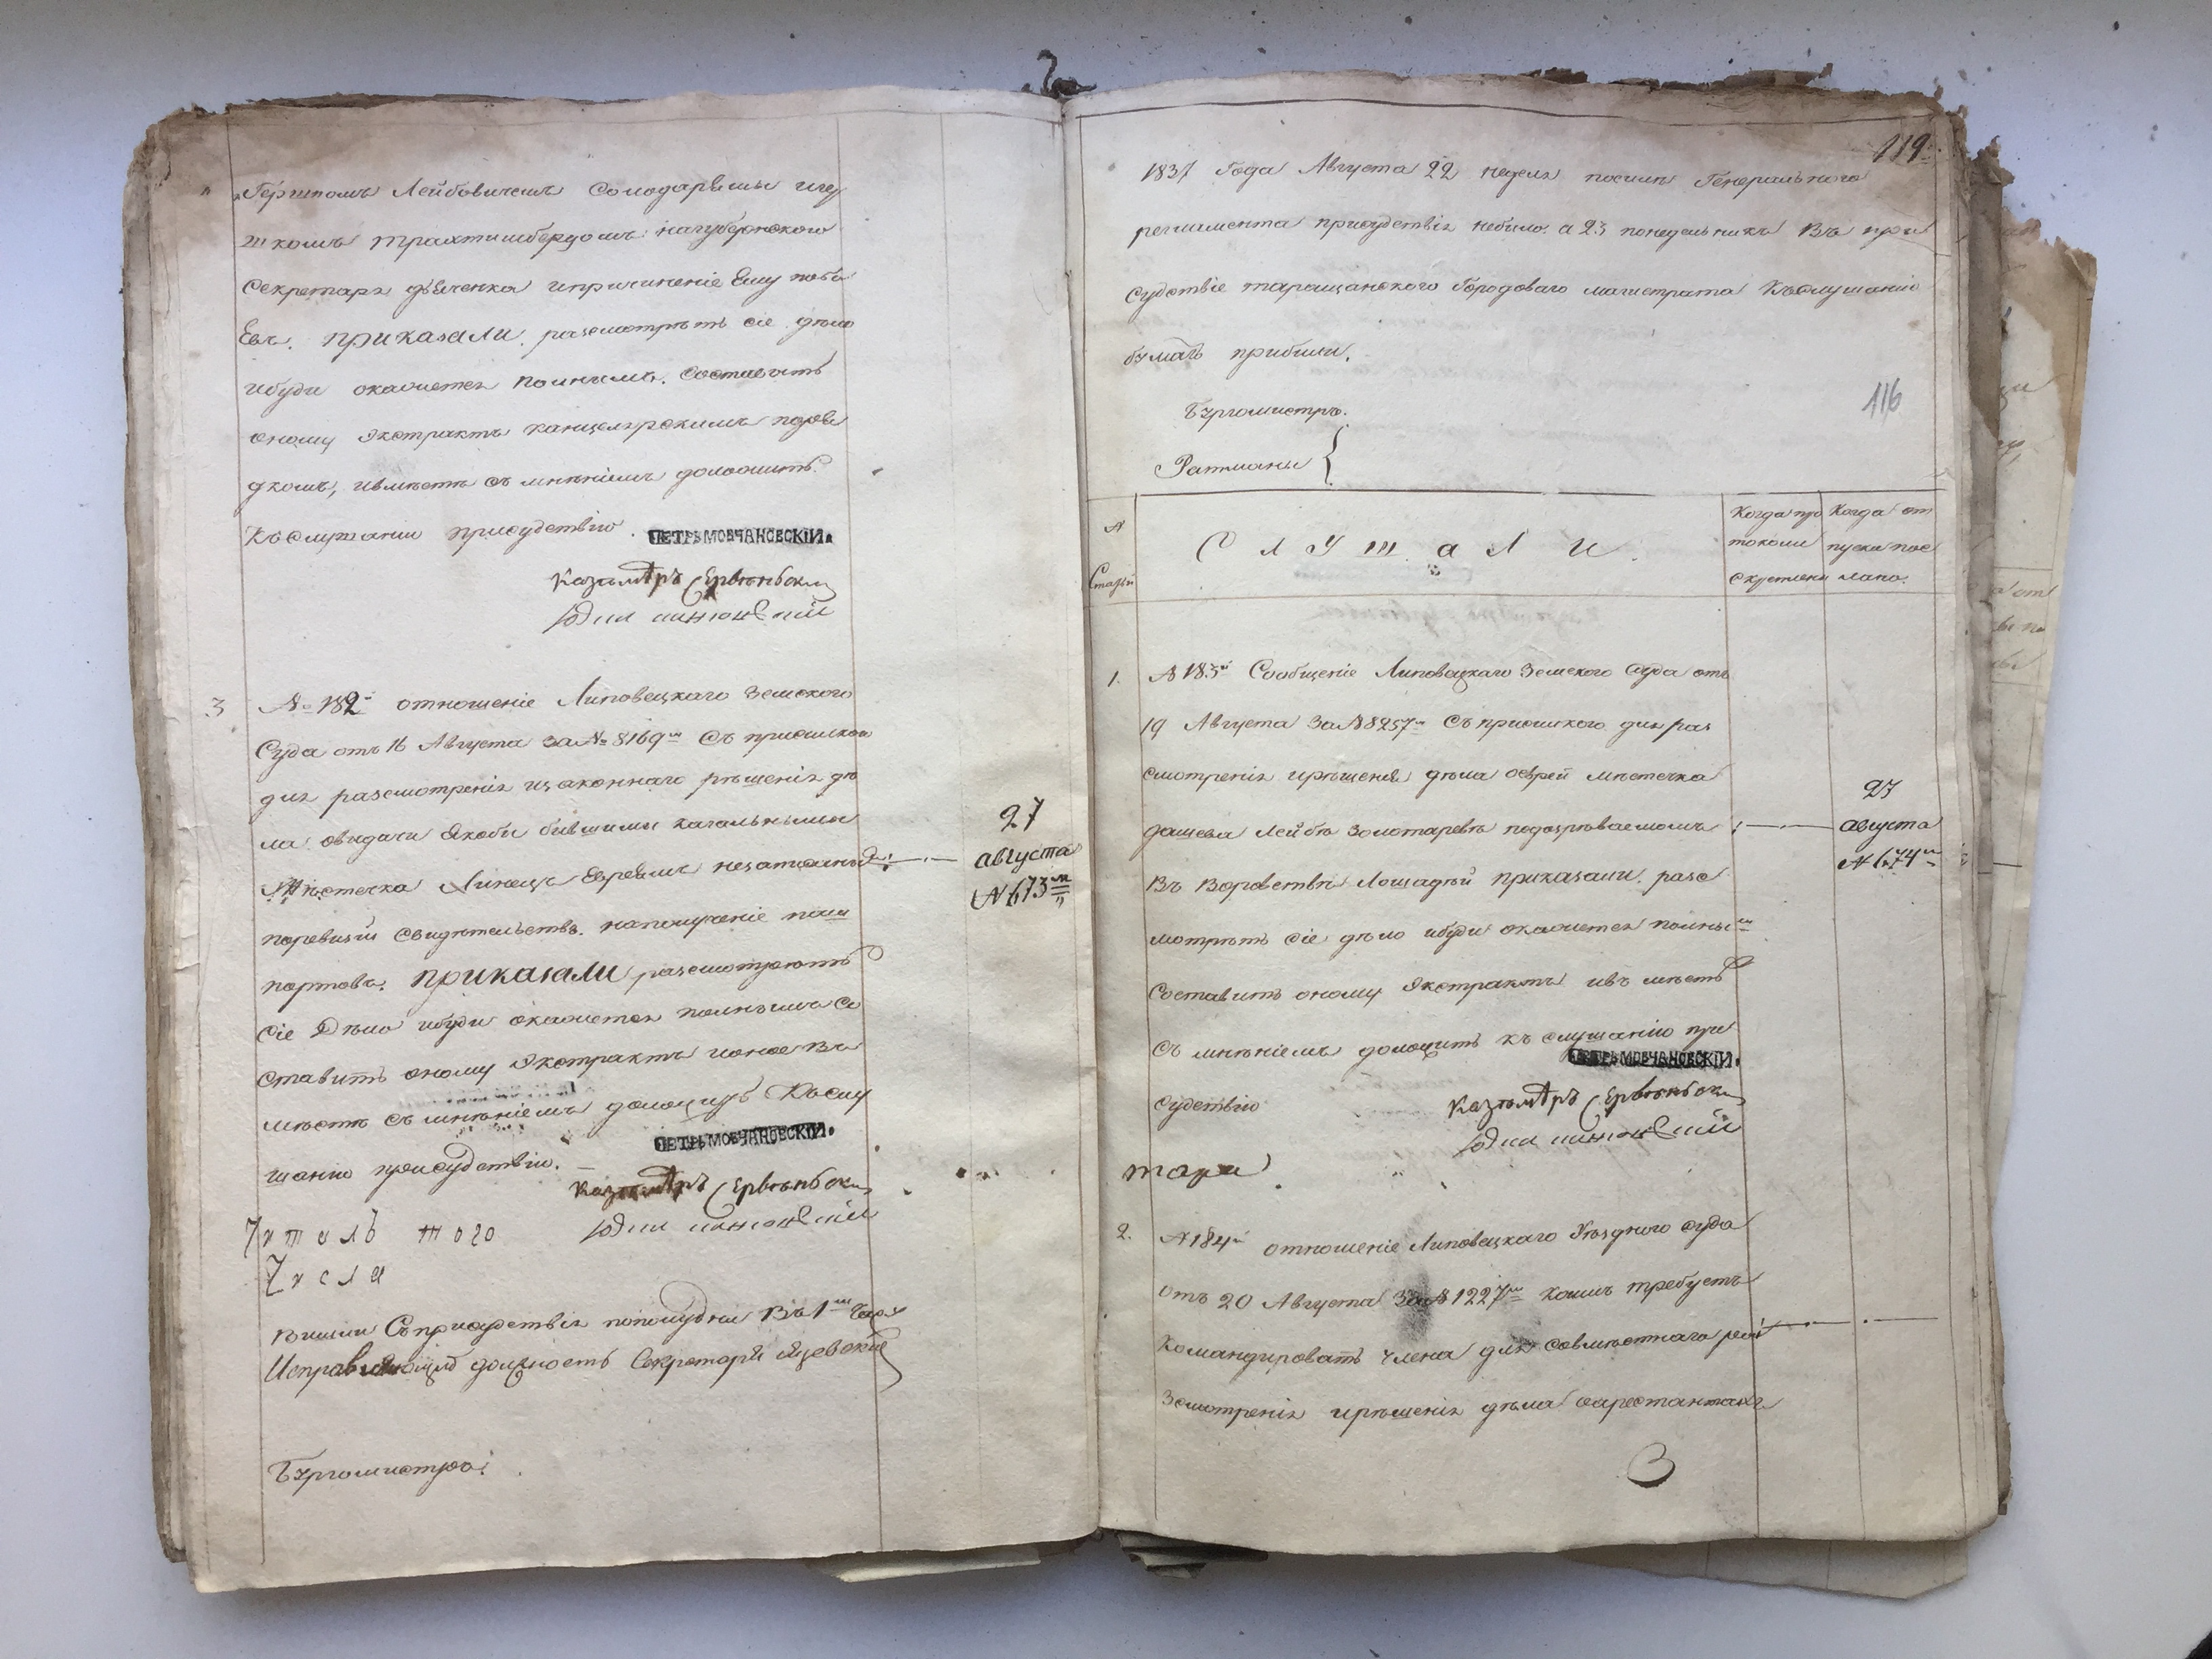 Гершкомъ Лейбовичемъ Солодаремъ и гер
шкомъ трахтимберомъ на губернского
Секретаря дѣяченка и причиненіе Ему побо
Евъ. приказали. разсмотрѣть сіе дѣло
ибуди окажется полнымъ. Составить
оному экстрактъ канцелярскимъ поря
дкомъ, и вмѣсте съ мнѣніемъ доложить
Къ слушанию присудствію.
ПЕТРЪ МОВЧАНОВСКІЙ.
Казымѣръ
3 № 182й отношеніе Липовецкаго Земского
Суда отъ 16 Августа за № 8169м Съ присилкою
для разсмотренія и законнаго рѣшенія дѣ
ла овидачи Якобы бившими кагальными
Мѣстечка Линецъ Евреямъ незаписаннымъ
поревизіи свидѣтельствъ. на получение паш
портовъ. приказали разсмотрить
сіе Дѣло ибуди окажется полнымъ Со
ставить оному экстрактъ и оное вм
мѣсте съ мнѣніемъ доложить Къ слу
шанію присудствію.
27
августа
№ 673м
ПЕТРЪ МОВЧАНОВСКІЙ.
Казымѣръ
того
числа
вишли Съ присудствія пополудни Въ 1м часу
Исправляющій должность Секретаря
Бургомистръ:
119
1837 Года Августа 22 неделя посиле Генерального
регламента присудствія небило. а 23 понедельникъ Въ при
судствіе таращанского Городоваго магистрата Къ слушанію
бумагъ прибили.
116
Бургомистръ.
Ратманы {
№ Статьи
Слушали.
Когда про
токоли
скреплени
Когда от
пуска пос
лано.
1. № 183й Сообщеніе Липовецкаго Земского Суда отъ
19 Августа За № 8257м Съ присилкого для раз
смотренія ирѣшенія дѣла о еврей мѣстечка
дашева Лейбѣ Золотаревѣ подозрѣваемомъ
Въ Воровствѣ Лошадѣй приказали. разс
мотрѣть сіе дѣло ибуди окажется полным
Составить оному экстрактъ ивъ мѣстѣ
съ мнѣніемъ доложить къ слушанію при
судствію
27
августа
№ 674м
ПЕТРЪ МОВЧАНОВСКІЙ.
Казымѣръ
2. № 184й отношеніе Липовецкаго Уѣздного Суда
отъ 20 Августа За № 1227м коимъ требуетъ
Командировать члена для совмѣстнаго ра
зсмотренія ирѣшенія дѣла оарестантахъ